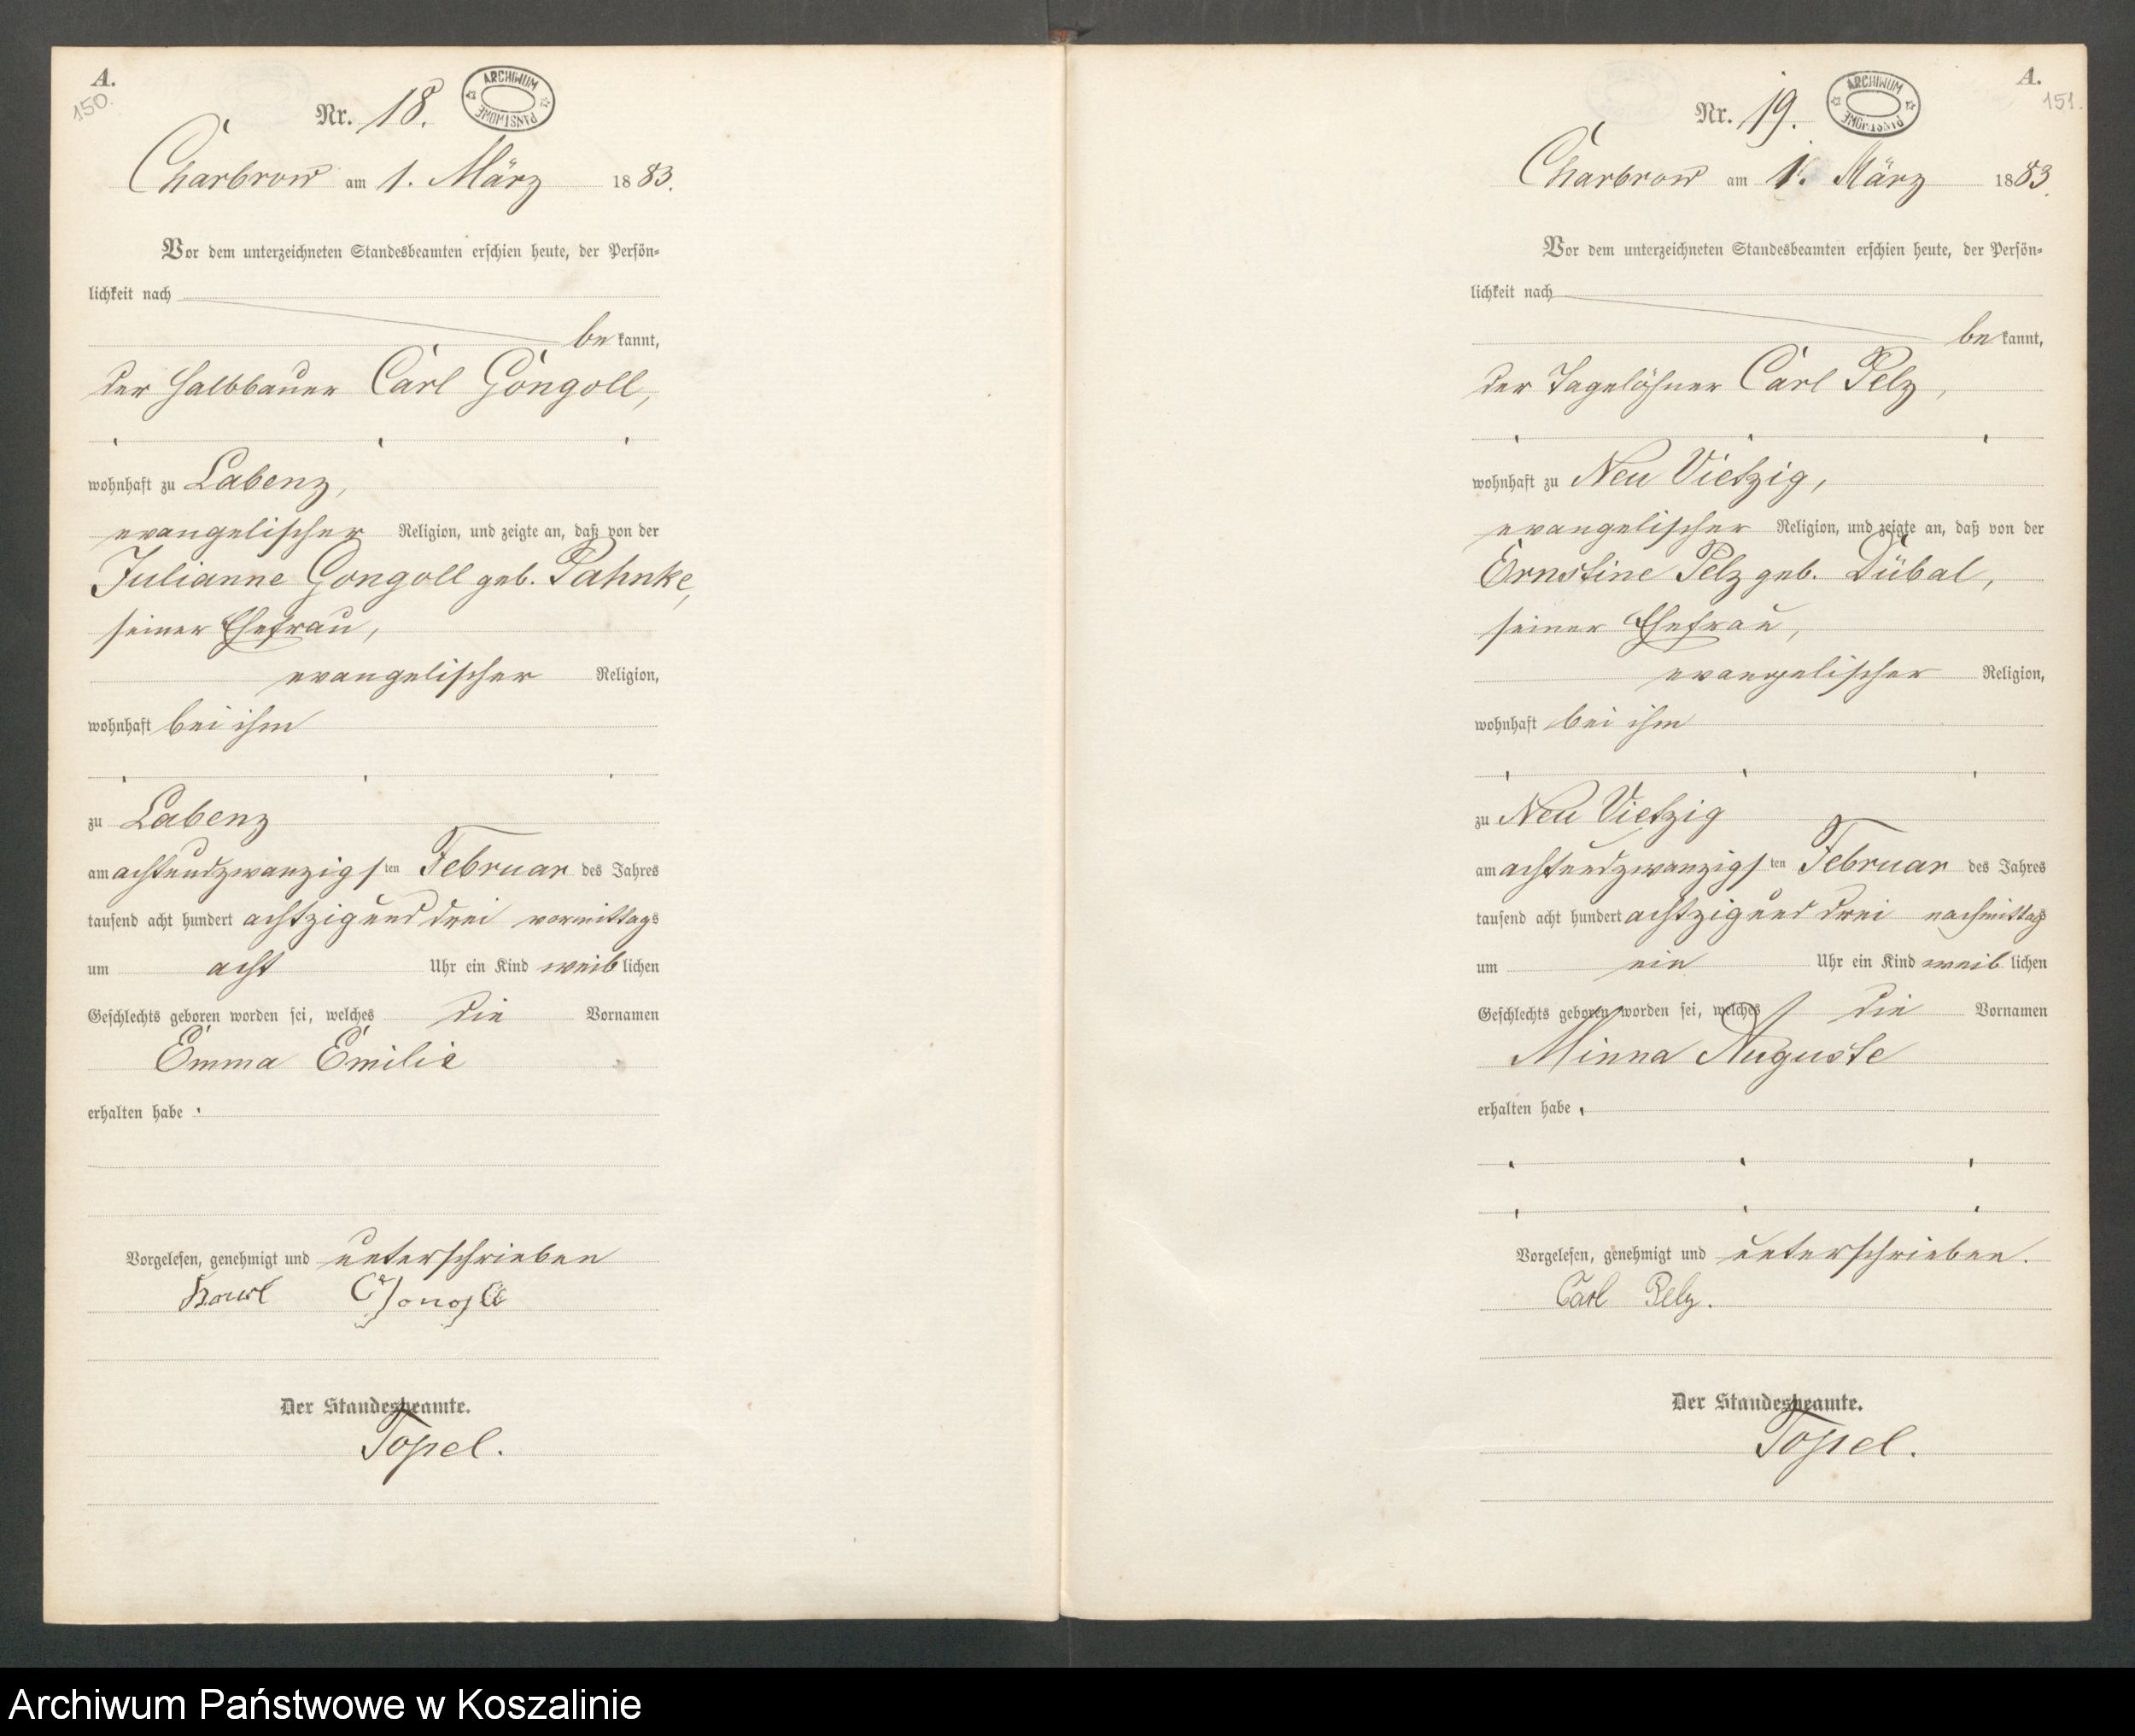 A.
150.
Nr. 18.
ARCHIWUM PAŃSTWOWE
Charbrow am 1. März 1883.
Vor dem unterzeichneten Standesbeamten erschien heute, der Persön-
lichkeit nach
be kannt,
der Halbbauer Carl Gongoll,
wohnhaft zu Labenz,
evangelischer Religion, und zeigte an, daß von der
Julianne Gongoll geb. Pahnke,
seiner Ehefrau,
evangelischer Religion,
wohnhaft bei ihm
zu Labenz
am achtundzwanzigsten Februar des Jahres
tausend acht hundert achtzig und drei vormittags
um acht Uhr ein Kind weiblichen
Geschlechts geboren worden sei, welches die Vornamen
Emma Emilie
erhalten habe.
Vorgelesen, genehmigt und unterschrieben
Karl
Der Standesbeamte.
Topel.
A.
151.
Nr. 19.
ARCHIWUM PAŃSTWOWE
Charbrow am 1. März 1883.
Vor dem unterzeichneten Standesbeamten erschien heute, der Persön-
lichkeit nach
be kannt,
der Tagelöhner Carl Pelz,
wohnhaft zu Neu Vietzig,
evangelischer Religion, und zeigte an, daß von der
Ernstine Pelz geb. Dübal,
seiner Ehefrau,
evangelischer Religion,
wohnhaft bei ihm
zu Neu Vietzig
am achtundzwanzigsten Februar des Jahres
tausend acht hundert achtzig und drei nachmittags
um ein Uhr ein Kind weiblichen
Geschlechts geboren worden sei, welches die Vornamen
Minna Auguste
erhalten habe.
Vorgelesen, genehmigt und unterschrieben.
Carl Pelz.
Der Standesbeamte.
Topel.
Archiwum Państwowe w Koszalinie